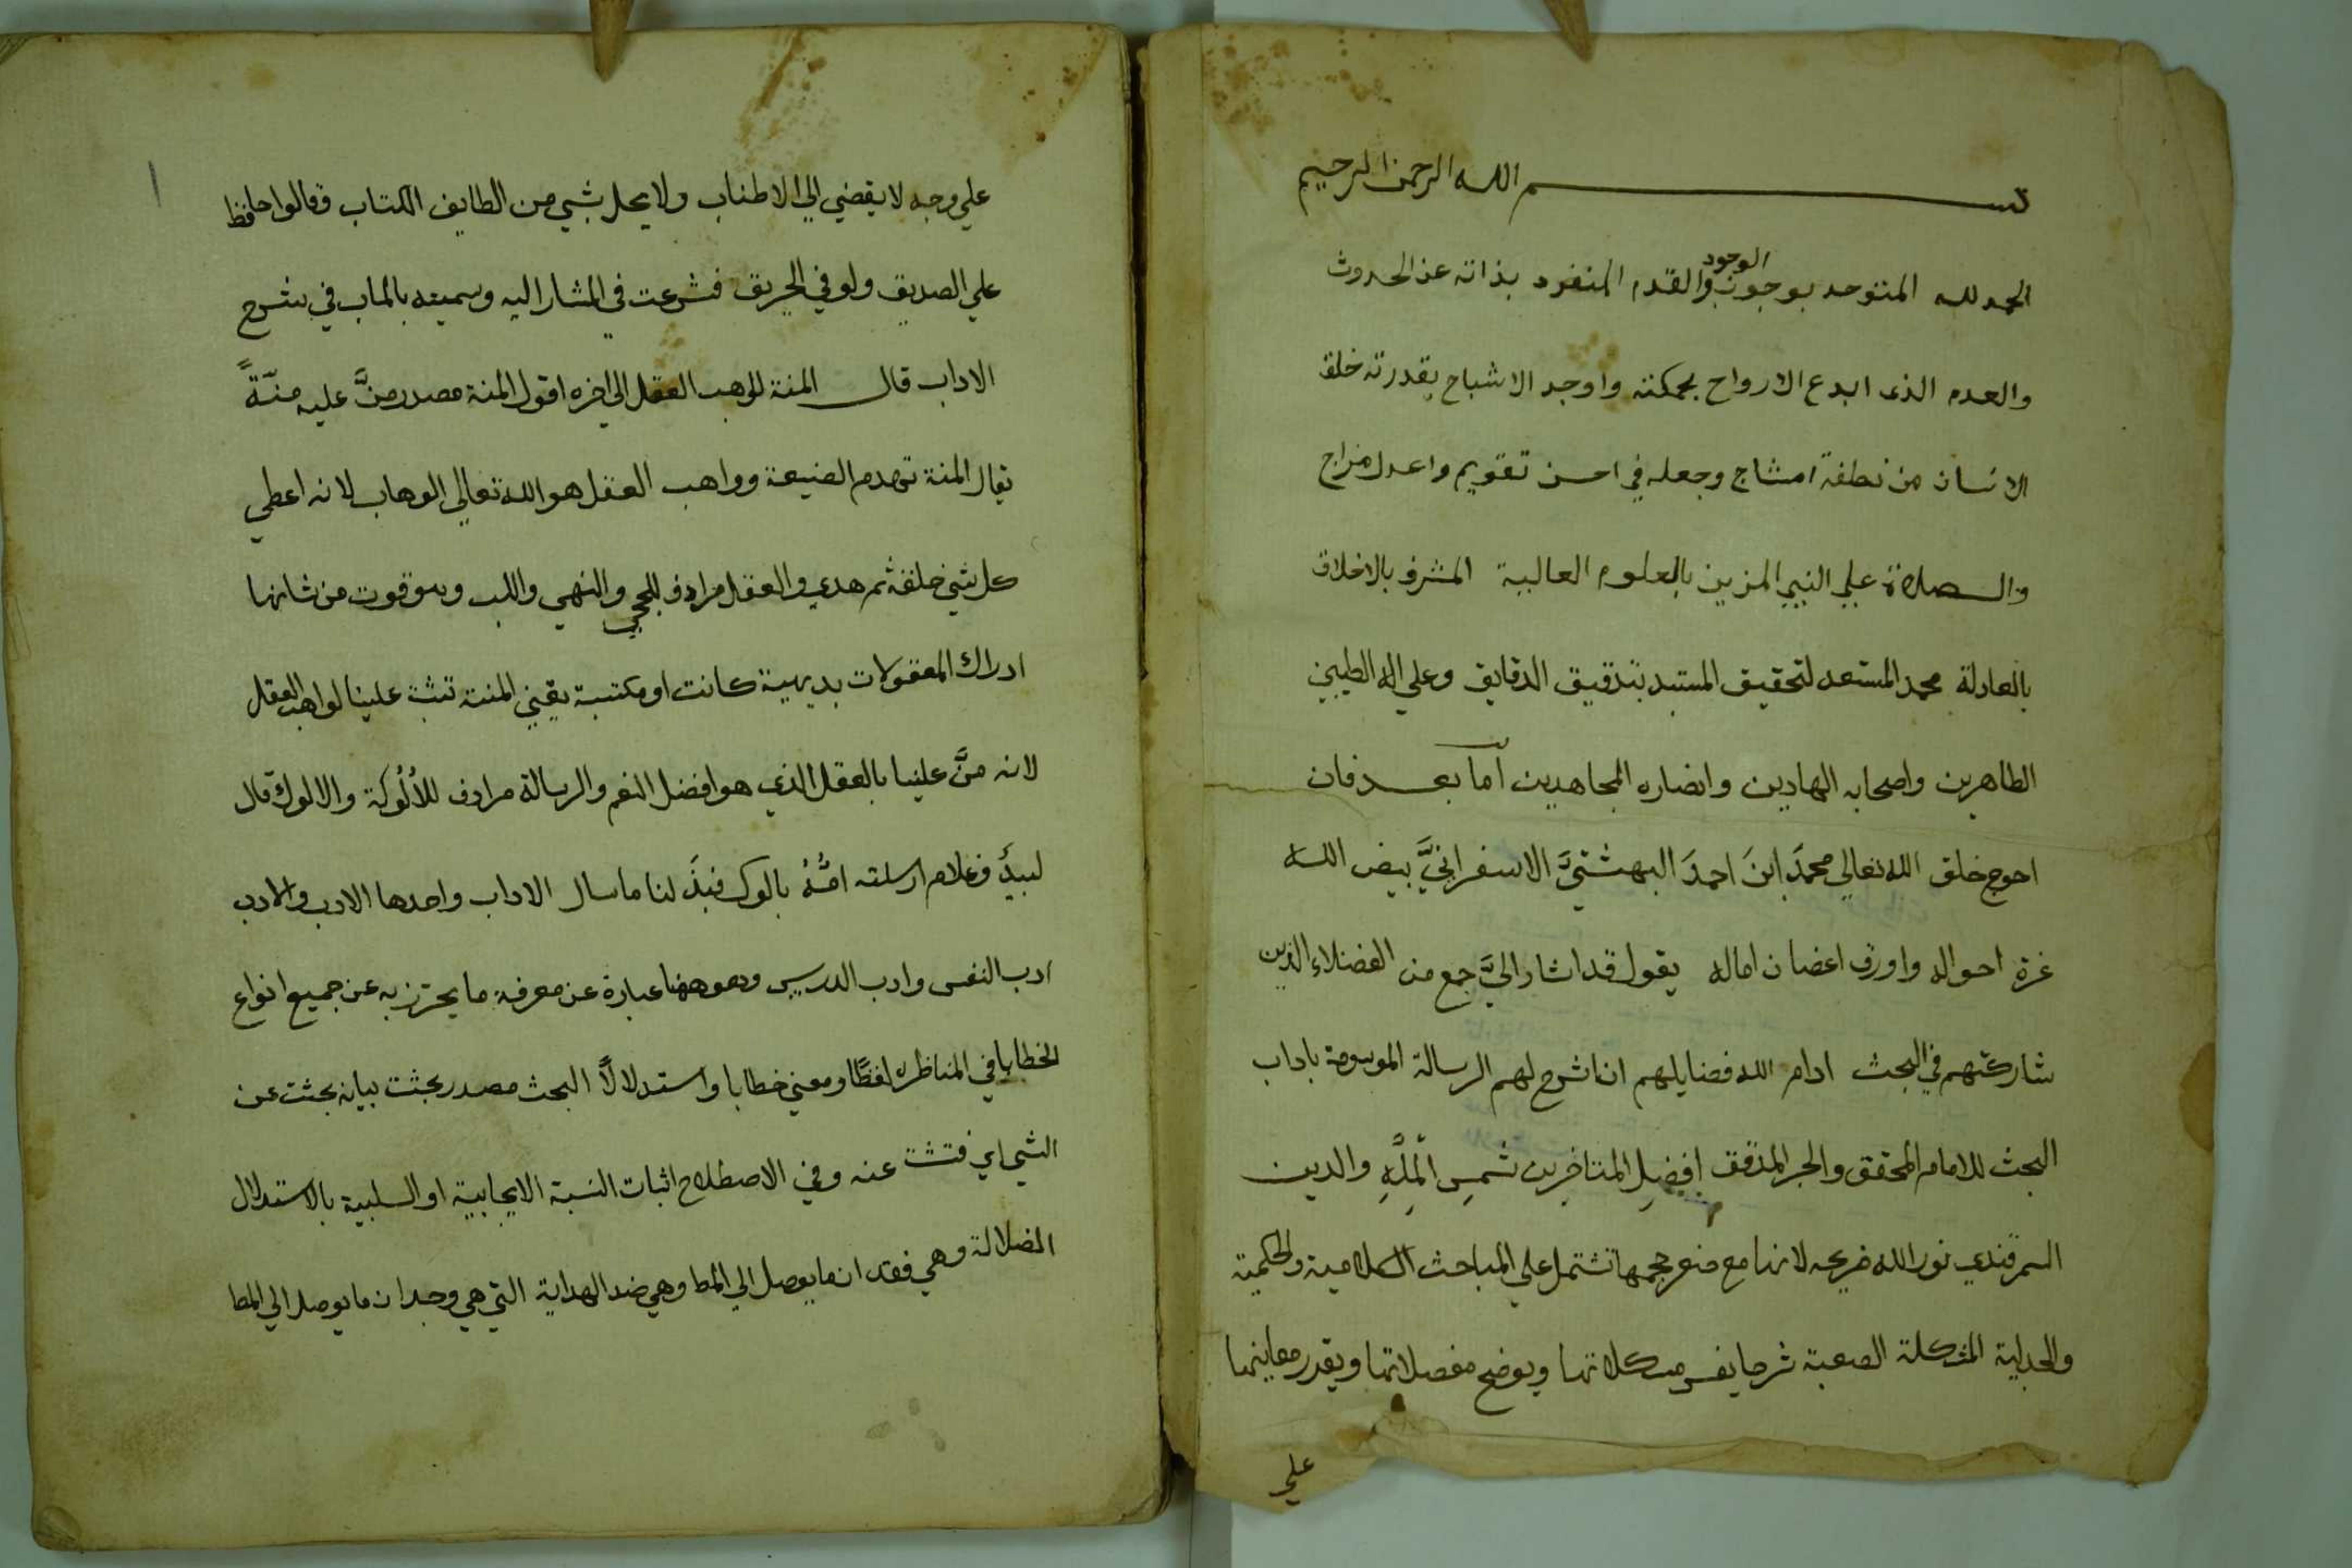 بسم الله الرحمن الرحيم
الحمد لله المتوحد بوجوب الوجود والقدم المنفرد بذاته عن الحدوث
والعدم الذى ابدع الارواح بحكمته واوجد الاشباح بقدرته خلق
الانسان من نطفة امشاج وجعله في احسن تقويم واعدل مزاج
والصلاة علي النبي المزين بالعلوم العالية المشرف بالاخلاق
بالعادلة محمد المستعد لتحقيق المستبد بتدقيق الدقايق وعلي اله الطيبين
الطاهرين واصحابه الهادين وانصاره المجاهدين اما بعد فان
احوج خلق الله تعالي محمدَ ابنَ احمدَ البهشتيَّ الاسفراينيَّ بيض الله
غرة احواله واورق اغصان اماله يقول قد اشار اليَّ جمع من الفضلاء الذين
شاركتهم في البحث ادام الله فضايلهم ان اشرح لهم الرسالة الموسومة باداب
البحث للامام المحقق والحبر المدقق افضلِ المتاخرين شمسِ الْمِلَّهِ والدين
السمرقندي نور الله ضريحه لانها مع صغر حجمها تشتمل علي المباحث الكلامية والحكمية
والجدلية المشكلة الصعبة شرحا يفسر مشكلاتها ويوضح مفصلاتها ويقدر معاينها
علي
علي وجه لا يقضي الي الاطناب ولا يحل بشي من الطايف الكتاب وقالوا حافظ
علي الصديق ولو في الحريق فشرعت في المشار اليه وسميته بالماب في شرح
الاداب قال المنة لواهب العقل الي اخره اقول المنة مصدر منَّ عليه منّةً
يقال المنة تهدم الصنيعة وواهب العقل هو الله تعالي الوهاب لانه اعطي
كل شي خلقه ثم هدي والعقل مرادف للحجي والنهي واللب وهو قوت من شانها
ادراك المعقولات بديهية كانت او مكتسبة يعني المنة تثبت علينا لواهب العقل
لانه منَّ علينا بالعقل الذي هو افضل النعم والرسالة مرادف للأُلُوكة والالوك قال
لبيدٌ وغلام ارسلته امُّهُ بالوك فبذَلنا ما سال الاداب واحدها الادب والادب
ادب النفس وادب الدرس وهو ههنا عبارة عن معرفة ما يحترز به عن جميع انواع
الخطايا في المناظره لفظًا ومعني خطابا واستدلالًا البحث مصدر بحثت بيانه بحثت عن
الشي اي فتشت عنه وفي الاصطلاح اثبات النسبة الايجابية او السلبية بالاستدلال
الضلالة وهي فقدان ما يوصل الي المط وهي ضد الهداية التي هي وجدان ما يوصل الي المط